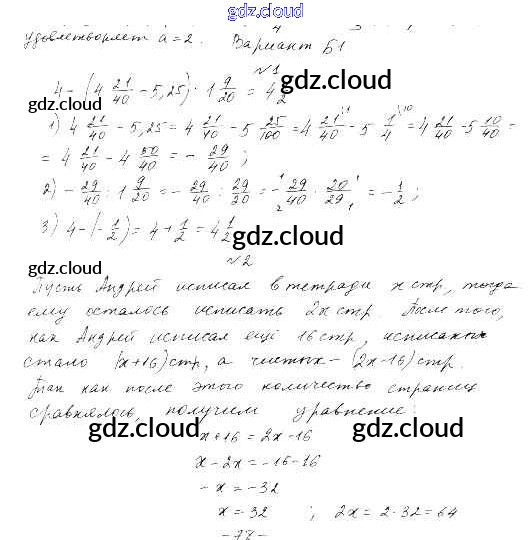 gdz.cloud
удовлетворяет a = 2. Вариант Б1
№1
4 - (4 21/40 - 5,25) : 1 9/20 = 4 1/2
gdz.cloud gdz.cloud
1) 4 21/40 - 5,25 = 4 21/40 - 5 25/100 = 4 21/40 - 5 1/4 = 4 21/40 - 5 10/40 =
= 4 21/40 - 4 50/40 = - 29/40 ;
2) - 29/40 : 1 9/20 = - 29/40 : 29/20 = - 29/40 · 20/29 = - 1/2 ;
3) 4 - (- 1/2) = 4 + 1/2 = 4 1/2
gdz.cloud
№2
gdz.cloud
Пусть Андрей исписал в тетради x стр, тогда
ему осталось исписать 2x стр. После того,
как Андрей исписал ещё 16 стр, исписанных
стало (x+16) стр, а чистых - (2x-16) стр.
Так как после этого количество страниц
сравнялось, получим уравнение:
gdz.cloud gdz.cloud
x + 16 = 2x - 16
x - 2x = -16 - 16
-x = -32
x = 32 ; 2x = 2·32 = 64
-78-